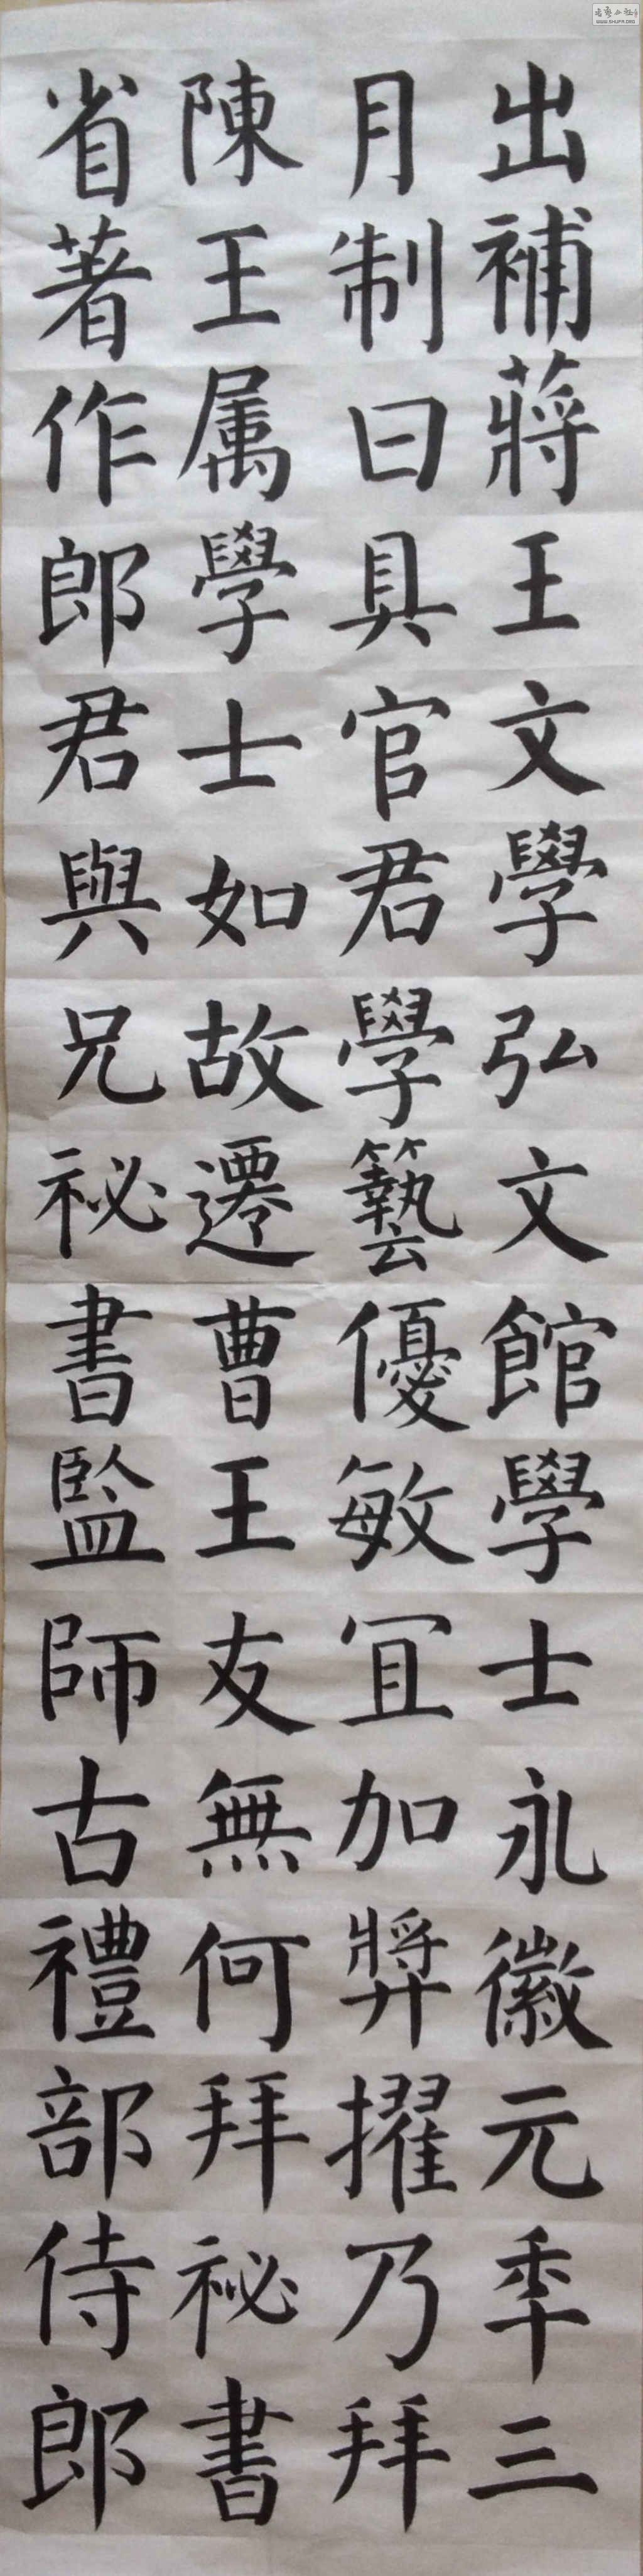 出補蔣王文學弘文館學士永徽元秊三
月制曰具官君學藝優敏宜加奨擢乃拜
陳王属學士如故遷曹王友無何拜祕書
省著作郎君與兄祕書監師古禮部侍郎
WWW.SHUFA.ORG